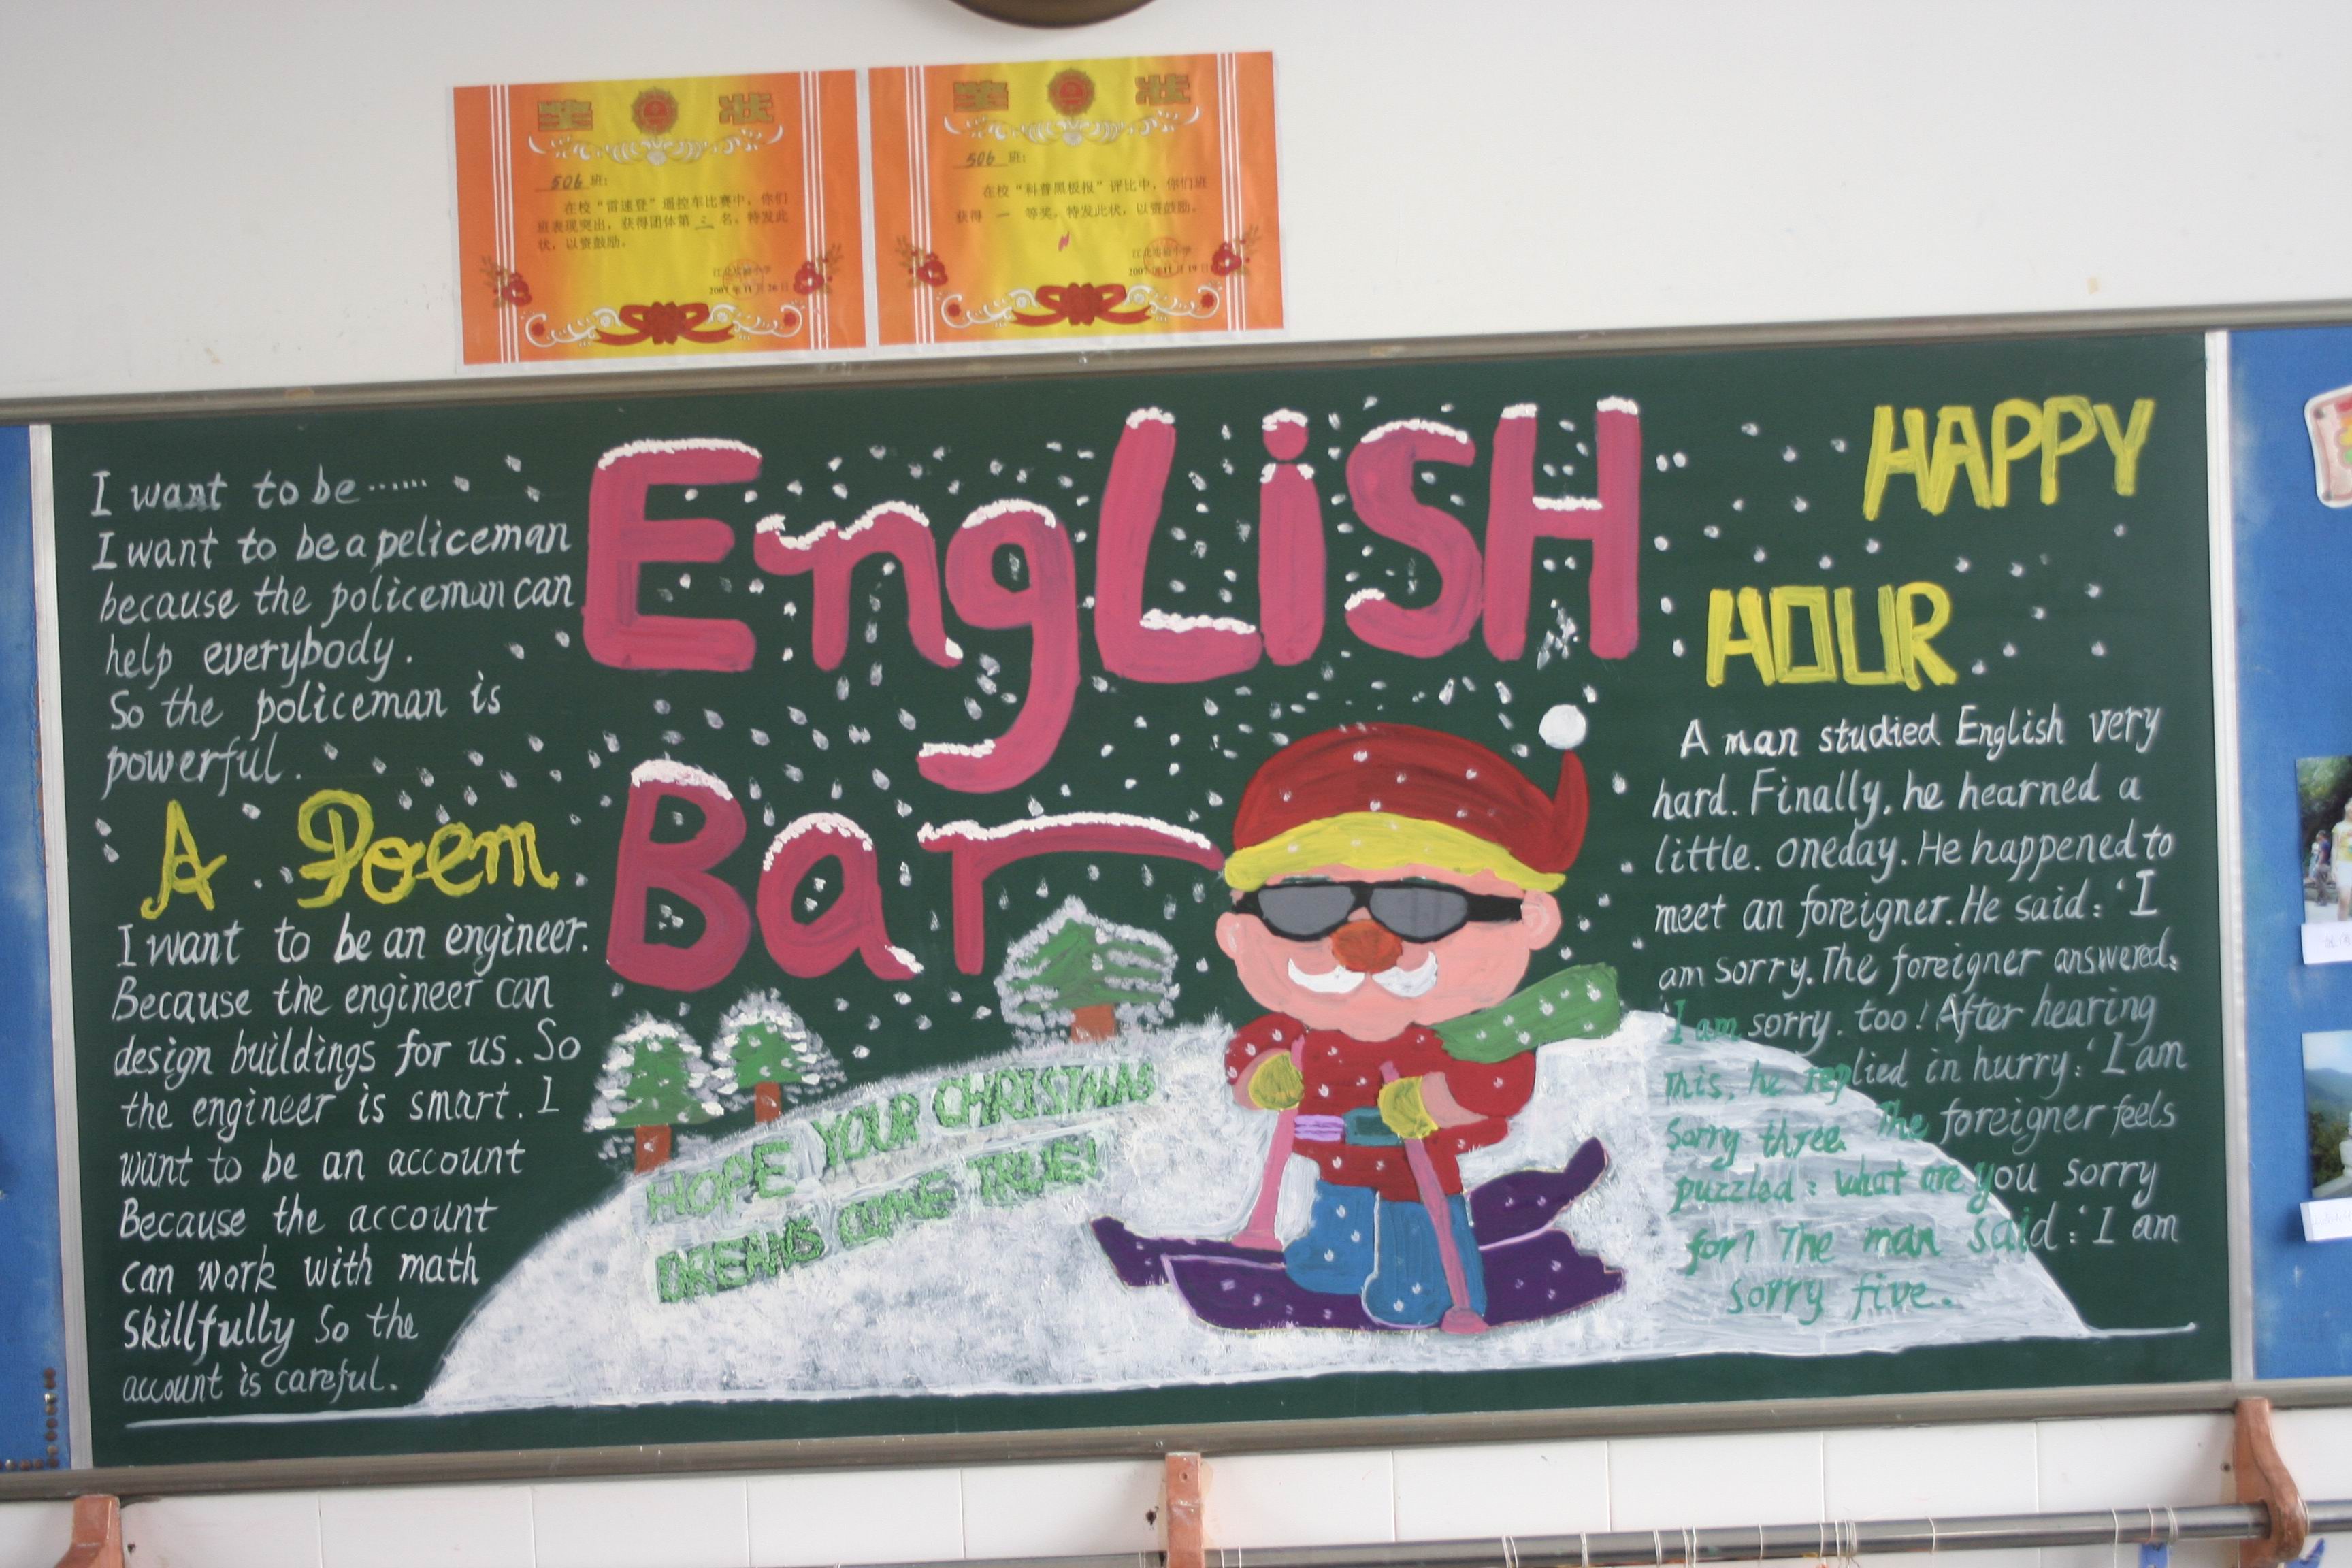 奖 状
506 班:
在校“雷速登”遥控车比赛中，你们
班表现突出，获得团体第 三 名。特发此
状，以资鼓励。
江北实验小学
2007年11月26日
奖 状
506 班:
在校“科普黑板报”评比中，你们班
获得 一 等奖。特发此状，以资鼓励。
江北实验小学
2007年11月19日
EngLiSH
Bar
I want to be ......
I want to be a peliceman
because the policeman can
help everybody.
So the policeman is
powerful.
A Poem
I want to be an engineer.
Because the engineer can
design buildings for us. So
the engineer is smart. I
want to be an account
Because the account
can work with math
skillfully So the
account is careful.
HOPE YOUR CHRISTMAS
DREAMS COME TRUE!
HAPPY
HOUR
A man studied English very
hard. Finally, he hearned a
little. oneday. He happened to
meet an foreigner. He said: ‘I
am sorry. The foreigner answered:
‘I am sorry. too! After hearing
This, he replied in hurry: ‘I am
Sorry three. The foreigner feels
puzzled: what are you sorry
for? The man said: ‘I am
sorry five.